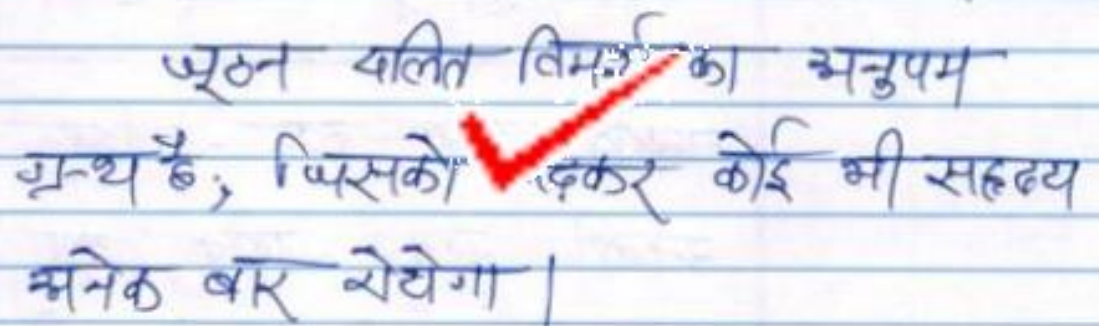 जूठन दलित विमर्श का अनुपम
ग्रन्थ है, जिसको पढ़कर कोई भी सहृदय
अनेक बार रोयेगा।